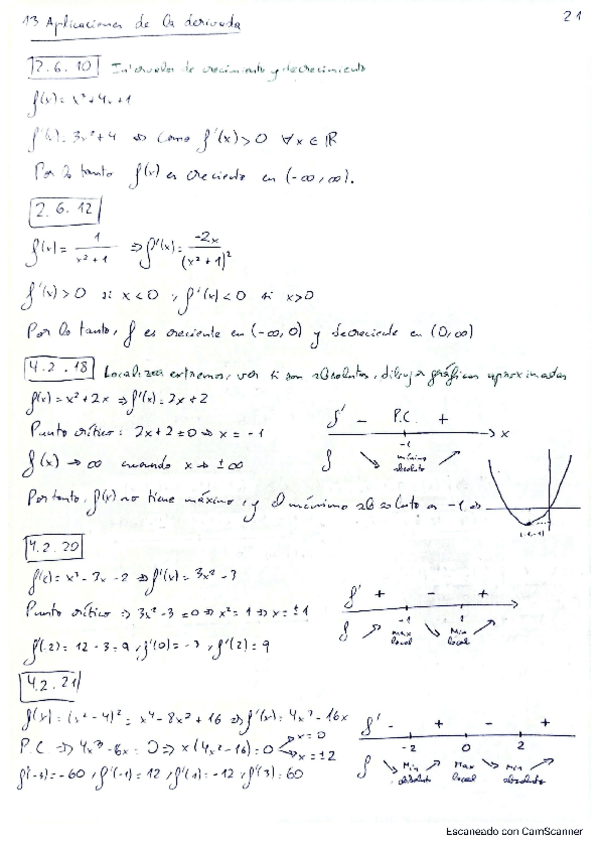 13 Aplicaciones de la derivada 21
2.6.10 Intervalos de crecimiento y decrecimiento
f(x) = x³+4x+1
f'(x) = 3x²+4 ⇒ Como f'(x)>0 ∀x∈ℝ
Por lo tanto f(x) es creciente en (-∞,∞).
2.6.12
f(x) = 1/(x²+1) ⇒ f'(x) = -2x/(x²+1)²
f'(x)>0 si x<0 , f'(x)<0 si x>0
Por lo tanto, f es creciente en (-∞,0) y decreciente en (0,∞)
4.2.18 Localizar extremos, ver si son absolutos, dibujar gráficas aproximadas
f(x) = x²+2x ⇒ f'(x) = 2x+2
Punto crítico: 2x+2=0 ⇒ x=-1
f' - P.C. +
-1 → x
f ↘ mínimo absoluto ↗
f(x) → ∞ cuando x → ±∞
Por tanto, f(x) no tiene máximo, y el mínimo absoluto es -1 ⇒
(-1,-1)
4.2.20
f(x) = x³-3x-2 ⇒ f'(x) = 3x²-3
Punto crítico ⇒ 3x²-3=0 ⇒ x²=1 ⇒ x=±1
f'(-2) = 12-3=9, f'(0)=-3, f'(2)=9
f' + - +
-1 1
f ↗ max local ↘ Min local ↗
4.2.21
f(x) = (x²-4)² = x⁴-8x²+16 ⇒ f'(x) = 4x³-16x
P.C. ⇒ 4x³-16x=0 ⇒ x(4x²-16)=0 x=0
x=±2
f'(-3)=-60, f'(-1)=12, f'(1)=-12, f'(3)=60
f' - + - +
-2 0 2
f ↘ Min absoluto ↗ Max local ↘ Min absoluto ↗
Escaneado con CamScanner